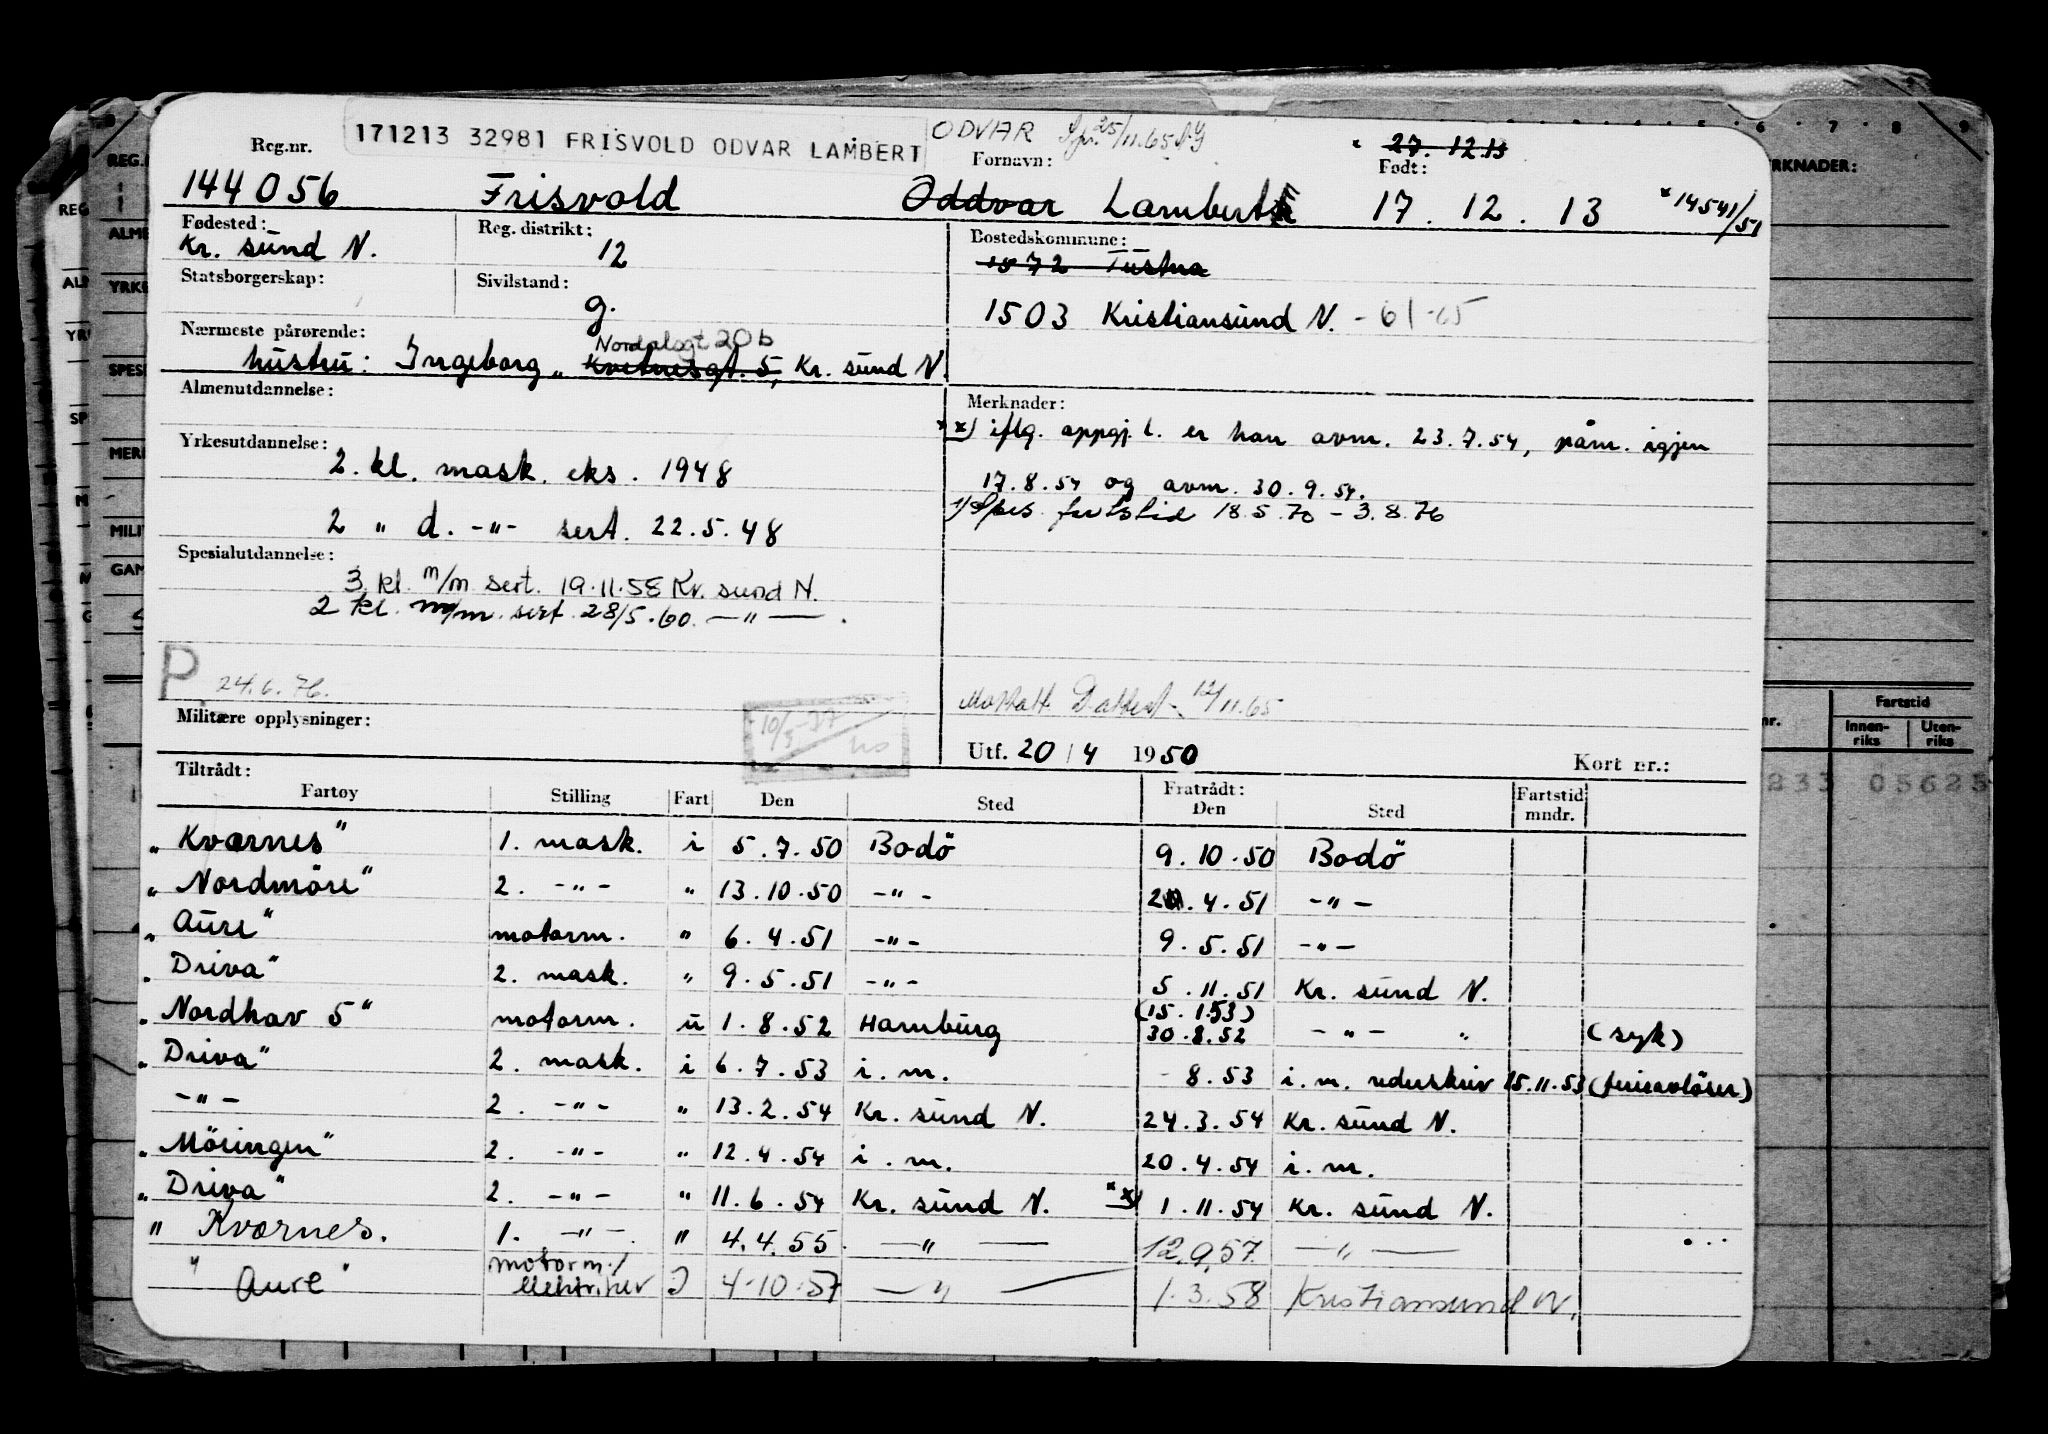 171213 32981 FRISVOLD ODVAR LAMBERT
ODVAR 25/11.65
27.12.13
Reg.nr. Fornavn: Født:
144056 Frisvold Oddvar Lambert 17.12.13 *14541/51
Fødested: Reg. distrikt: Bostedskommune:
Kr. sund N. 12 1572 Tustna
Statsborgerskap: Sivilstand:
g. 1503 Kristiansund N. - 61 -65
Nærmeste pårørende:
Nordalsgt 20b
hustru: Ingeborg „ Kvitnesgt. 5, Kr. sund N.
Almenutdannelse: Merknader:
**) iflg. oppgj. l. er han avm. 23.7.54, påm. igjen
17.8.54 og avm. 30.9.54.
Yrkesutdannelse:
2. kl. mask. eks. 1948
1) Spes. fartstid 18.5.70 - 3.8.76
2 " d. -"- sert. 22.5.48
Spesialutdannelse:
3 kl. m/m sert. 19.11.58 Kr. sund N.
2 kl. m/m. sert. 28/5.60. —"—.
P 24.6.76.
12/11.65
Militære opplysninger:
Utf. 20/4 1950 Kort nr.:
Tiltrådt: Fratrådt:
Fartøy Stilling Fart Den Sted Den Sted Fartstid mndr.
„Kvernes" 1. mask. i 5.7.50 Bodö 9.10.50 Bodö
„Nordmöre" 2. -"- " 13.10.50 -"- .4.51 -"-
„Aure" motorm. " 6.4.51 -"- 9.5.51 -"-
„Driva" 2. mask. " 9.5.51 -"- 5.11.51 Kr. sund N.
(15.1.53)
„Nordhav 5" motorm. u 1.8.52 Hamburg 30.8.52 -"- " (syk)
„Driva" 2. mask. i 6.7.53 i.m. - 8.53 i.m. rederskriv 15.11.53 (ferieavlöser)
-"- 2. -"- " 13.2.54 Kr. sund N. 24.3.54 Kr. sund N.
„Möringen" 2. -"- " 12.4.54 i.m. 20.4.54 i.m.
„Driva" 2. -"- " 11.6.54 Kr. sund N. **) 1.11.54 Kr. sund N.
" Kvernes. 1. -"-. " 4.4.55. —"— 12.9.57. —"—
" Aure " motorm./elektriker I 4.10.57 —"— 1.3.58 Kristiansund N.
6 7 8 9
REG.
ALM
YRKE
SPES
MER
MILI
GAM
RKNADER:
nr. Fartstid
Innenriks Utenriks
233 05625